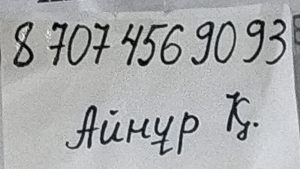 8 707 456 90 93
Айнұр Қ.